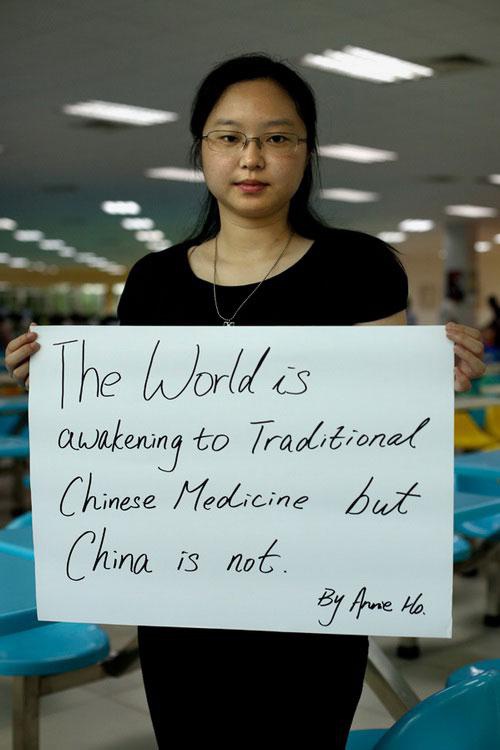 The World is
awakening to Traditional
Chinese Medicine but
China is not.
By Annie Ho.